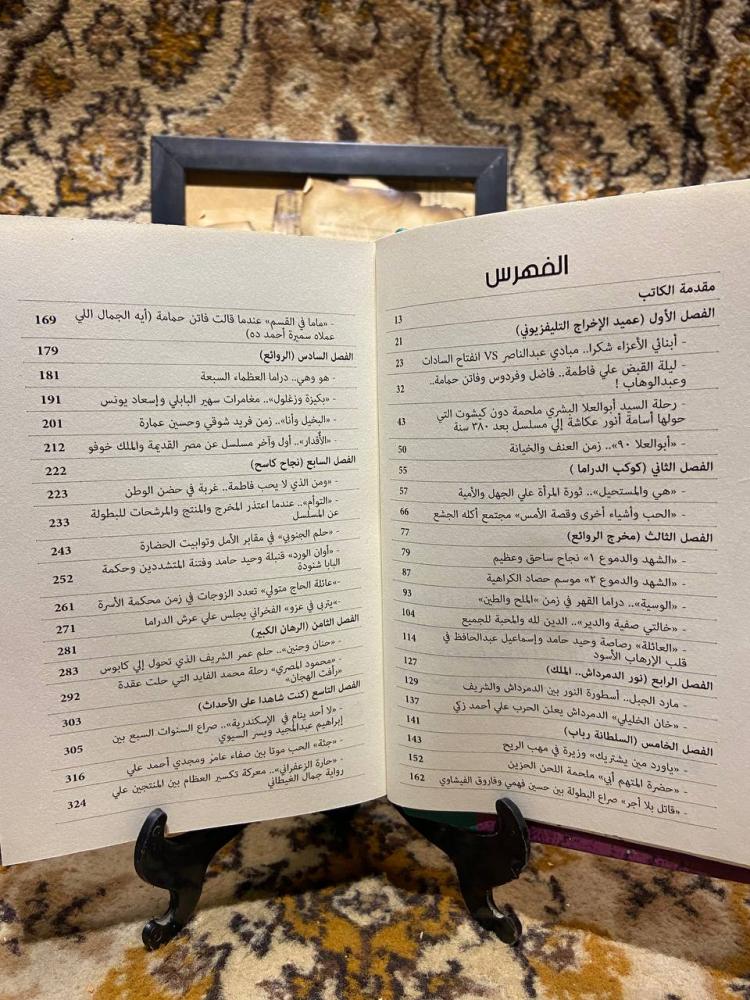 الفهرس
مقدمة الكاتب
13
الفصل الأول (عميد الإخراج التليفزيوني)
21
- أبنائي الأعزاء شكرا.. مبادي عبدالناصر VS انفتاح السادات
23
- ليلة القبض علي فاطمة.. فاضل وفردوس وفاتن حمامة..
وعبدالوهاب !
32
- رحلة السيد أبوالعلا البشري ملحمة دون كيشوت التي
حولها أسامة أنور عكاشة إلي مسلسل بعد ٣٨٠ سنة
43
- «أبوالعلا ٩٠».. زمن العنف والخيانة
50
الفصل الثاني (كوكب الدراما )
55
- «هي والمستحيل».. ثورة المرأة علي الجهل والأمية
57
- «الحب وأشياء أخرى وقصة الأمس» مجتمع أكله الجشع
66
الفصل الثالث (مخرج الروائع)
77
- «الشهد والدموع ١» نجاح ساحق وعظيم
79
- «الشهد والدموع ٢» موسم حصاد الكراهية
87
- «الوسية».. دراما القهر في زمن «الملح والطين»
93
- «خالتي صفية والدير».. الدين لله والمحبة للجميع
104
- «العائلة» رصاصة وحيد حامد وإسماعيل عبدالحافظ في
قلب الإرهاب الأسود
114
الفصل الرابع (نور الدمرداش.. الملك)
127
- مارد الجبل.. أسطورة النور بين الدمرداش والشريف
129
- «خان الخليلي» الدمرداش يعلن الحرب علي أحمد زكي
137
الفصل الخامس (السلطانة رباب)
141
- «ياورد مين يشتريك» وزيرة في مهب الريح
143
- «حضرة المتهم أبي» ملحمة اللحن الحزين
152
- «قاتل بلا أجر» صراع البطولة بين حسين فهمي وفاروق الفيشاوي
162
- «ماما في القسم» عندما قالت فاتن حمامة (أيه الجمال اللي
عملاه سميرة أحمد ده)
169
الفصل السادس (الروائع)
179
- هو وهي.. دراما العظماء السبعة
181
- «بكيزة وزغلول».. مغامرات سهير البابلي وإسعاد يونس
191
- «البخيل وأنا».. زمن فريد شوقي وحسين عمارة
201
- «الأقدار».. أول وآخر مسلسل عن مصر القديمة والملك خوفو
212
الفصل السابع (نجاح كاسح)
222
- «ومن الذي لا يحب فاطمة».. غربة في حضن الوطن
223
- «التوأم».. عندما اعتذر المخرج والمنتج والمرشحات للبطولة
عن المسلسل
233
- «حلم الجنوبي» في مقابر الأمل وتوابيت الحضارة
243
- «أوان الورد» قنبلة وحيد حامد وفتنة المتشددين وحكمة
البابا شنودة
252
-«عائلة الحاج متولي» تعدد الزوجات في زمن محكمة الأسرة
261
-«يتربى في عزو» الفخراني يجلس علي عرش الدراما
271
الفصل الثامن (الرهان الكبير)
281
- «حنان وحنين».. حلم عمر الشريف الذي تحول إلي كابوس
283
- «محمود المصري» رحلة محمد الفايد التي حلت عقدة
«رأفت الهجان»
292
الفصل التاسع (كنت شاهدا على الأحداث)
303
- «لا أحد ينام في الإسكندرية».. صراع السنوات السبع بين
إبراهيم عبدالمجيد ويسر السيوي
305
- «جثة» الحب موتا بين صفاء عامر ومجدي أحمد علي
316
- «حارة الزعفراني».. معركة تكسير العظام بين المنتجين علي
رواية جمال الغيطاني
324